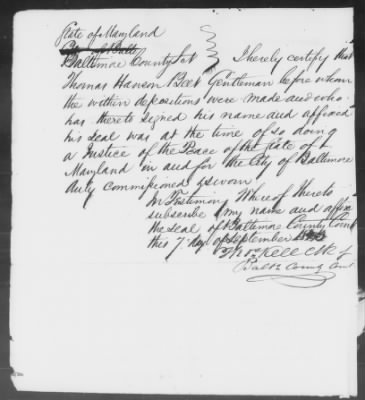 State of Maryland
Baltimore County Sct I hereby certify that
Thomas Hanson Belt Gentleman before whom
the within depositions were made and who
has thereto signed his name and affixed
his seal was at the time of so doing
a Justice of the Peace of the State of
Maryland in and for the City of Baltimore
duly commissioned & sworn
In Testimony Whereof I hereto
subscribe my name and affix
the seal of Baltimore County Court
this 7 day of September
Kell Clk of
Balto County Court